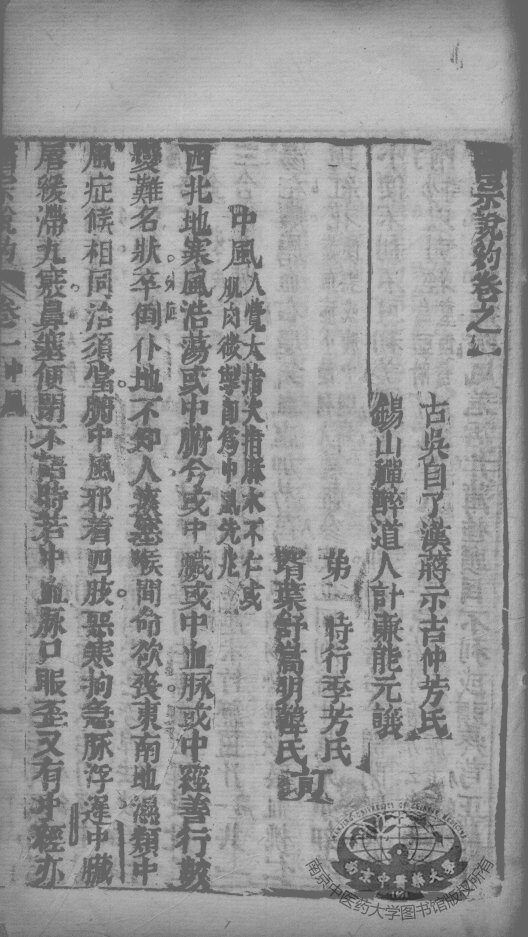 醫宗說約卷之一
古吳自了漢蔣示吉仲芳氏
錫山禪醉道人計兼能元議
弟時行季芳氏
壻葉舒嵩明韓氏
訂
中風人覺大指次指麻木不仁或
肌肉微掣卽爲中風先兆
西北地寒風浩蕩或中腑兮或中臟或中血脉或中經善行數
變難名狀卒倒仆地不知人痰塞喉間命欲喪東南地濕類中
風症候相同治須當腑中風邪着四肢惡寒拘急脉浮遲中臟
唇緩滯九竅鼻塞便閉不語時若中血脉口眼歪又有中經亦
醫宗說約
卷一中風
一
南京中医药大学图书馆版权所有